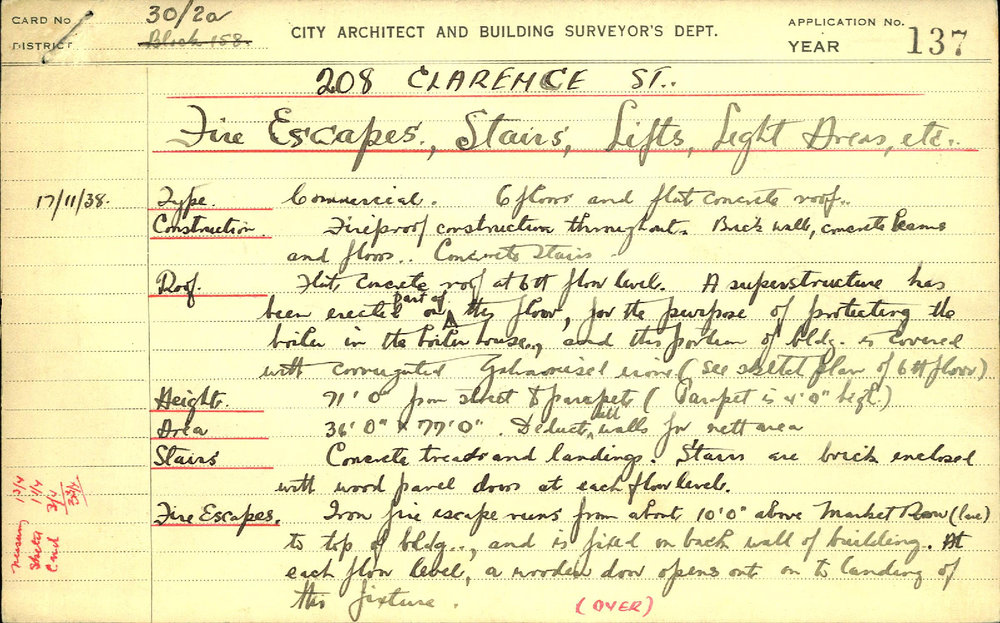 CARD No 30/2a
DISTRICT Block 158.
CITY ARCHITECT AND BUILDING SURVEYOR'S DEPT.
APPLICATION No.
YEAR
137
208 CLARENCE ST..
Fire Escapes, Stairs, Lifts, Light Areas, etc..
17/11/38. Type. Commercial. 6 floors and flat concrete roof..
Construction. Fireproof construction throughout. Brick walls, concrete beams
and floors.. Concrete Stairs.
Roof. Flat, concrete roof at 6th floor level. A superstructure has
been erected on part of this floor, for the purpose of protecting the
boiler in the boiler house.., and this portion of bldg. is covered
with corrugated Galvanised iron. (see sketch plan of 6th floor)
Height. 71' 0" from street to parapet (Parapet is 4'0" high.)
Area 36' 0" x 77' 0". Deduct with walls for nett area
Stairs Concrete treads and landings. Stairs are brick enclosed
with wood panel doors at each floor level.
Fire Escapes. Iron fire escape runs from about 10'0" above Market Row (lane)
to top of bldg.., and is fixed on back wall of building. At
each floor level, a wooden door opens out on to landing of
this fixture.
(OVER)
Measuring 1 3/4
Sketch 1 1/4
Card 3/4
3 3/4